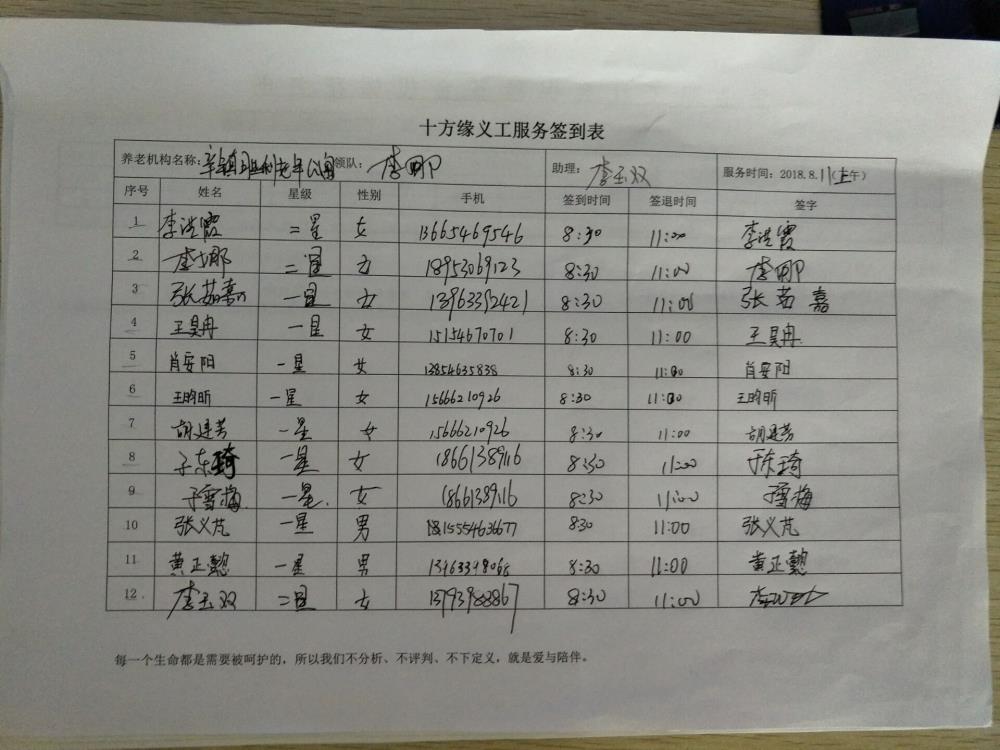 十方缘义工服务签到表
养老机构名称：辛镇胜利老年公寓 领队：李娜 助理：李玉双 服务时间：2018.8.11(上午)
序号 姓名 星级 性别 手机 签到时间 签退时间 签字
1 李洪霞 二星 女 13665469546 8:30 11:00 李洪霞
2 李娜 二星 女 18953069123 8:30 11:00 李娜
3 张茹嘉 一星 女 13963392421 8:30 11:00 张茹嘉
4 王昊冉 一星 女 15154670701 8:30 11:00 王昊冉
5 肖安阳 一星 女 13854635838 8:30 11:00 肖安阳
6 王昀昕 一星 女 15666210926 8:30 11:00 王昀昕
7 胡建芳 一星 女 15666210926 8:30 11:00 胡建芳
8 于东琦 一星 女 18661389116 8:30 11:00 于东琦
9 于雪梅 一星 女 18661389116 8:30 11:00 于雪梅
10 张义芃 一星 男 15554636677 8:30 11:00 张义芃
11 黄正懿 一星 男 13963398068 8:30 11:00 黄正懿
12 李玉双 二星 女 13793988867 8:30 11:00
每一个生命都是需要被呵护的，所以我们不分析、不评判、不下定义，就是爱与陪伴。